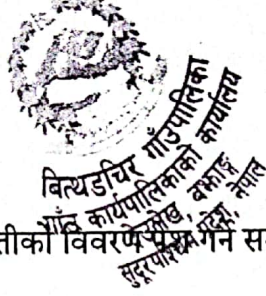 वित्थडचिर गाँउपालिका
गाँउ कार्यपालिकाको कार्यालय
बझाङ्ग
सुदूरपश्चिम प्रदेश, नेपाल
तीको विवरण पेश गर्ने स